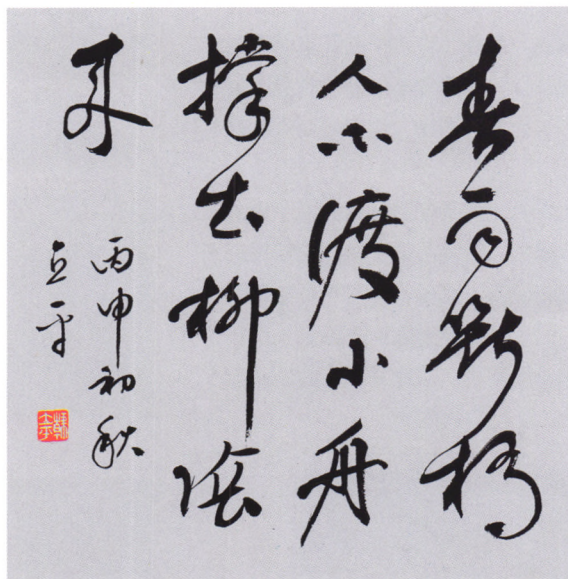 春雨断桥
人不渡小舟
撑出柳阴
来
丙申初秋
立平